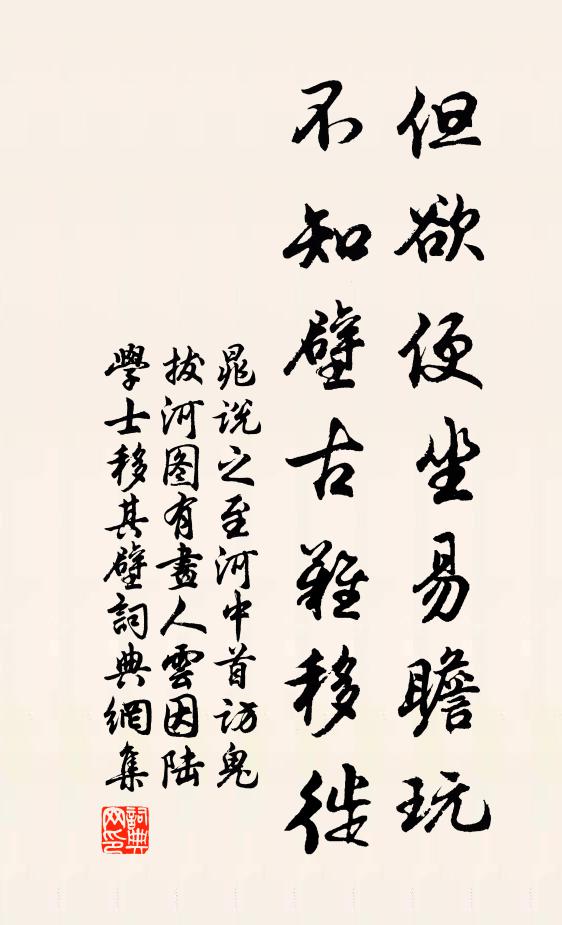 但欲便坐易瞻玩
不知壁古難移徙
晁说之至河中首访鬼
拔河图有畫人雲因陆
學士移其壁詞典網集
詞典
网印